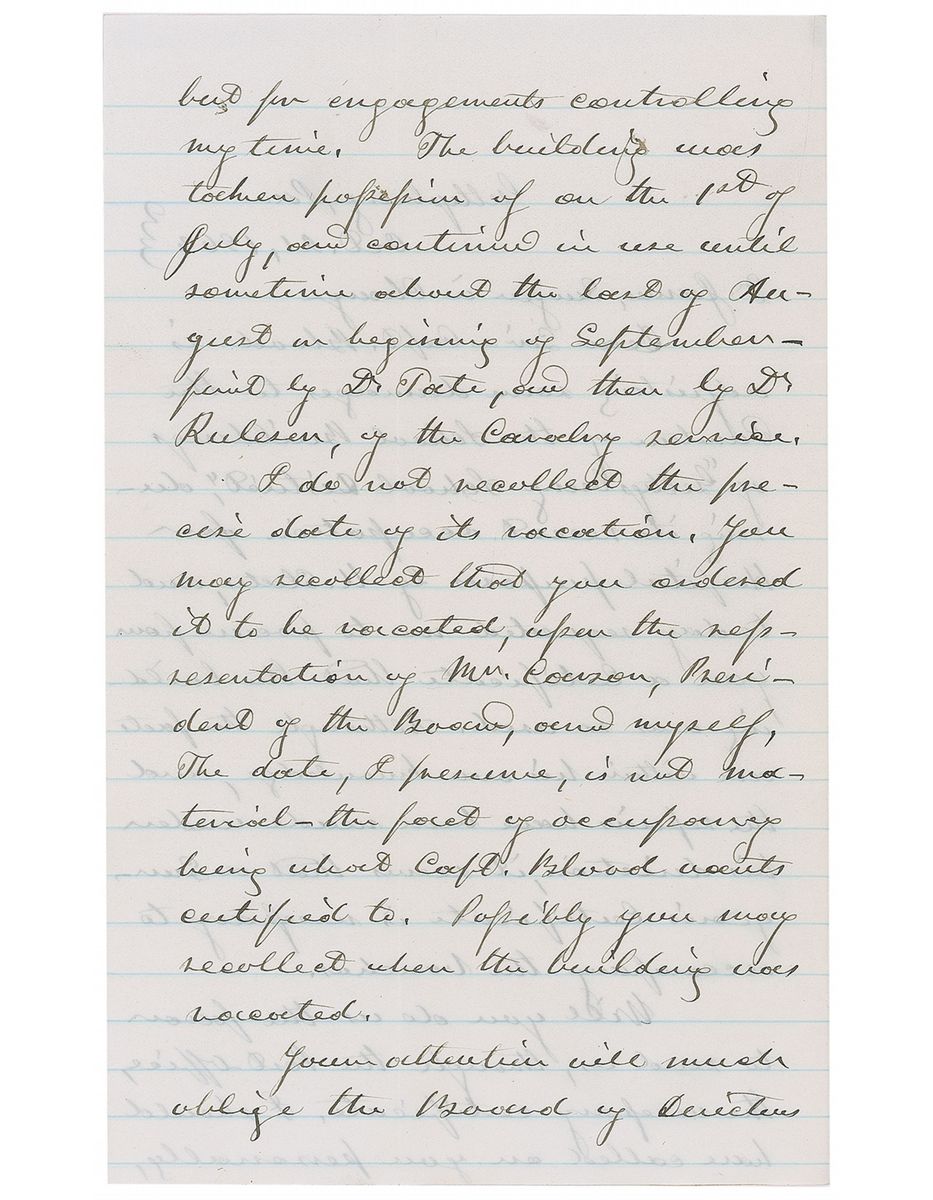 but for engagements controlling
my time. The building was
taken possession of on the 1st of
July, and continued in use until
sometime about the last of Au-
gust or beginning of September—
first by Dr Tate, and then by Dr
Rulesen, of the Cavalry service.
I do not recollect the pre-
cise date of its vacation. You
may recollect that you ordered
it to be vacated, upon the rep-
resentation of Mr. Carson, Presi-
dent of the Board, and myself,
The date, I presume, is not ma-
terial—the fact of occupancy
being what Capt. Blood wants
certified to. Possibly you may
recollect when the building was
vacated.
Your attention will much
oblige the Board of Directors